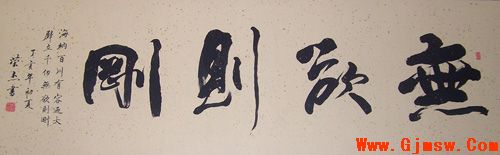 無欲則剛
海納百川有容迺大
壁立千仞無欲則剛
丁亥年初夏
書
www.Gjmsw.Com